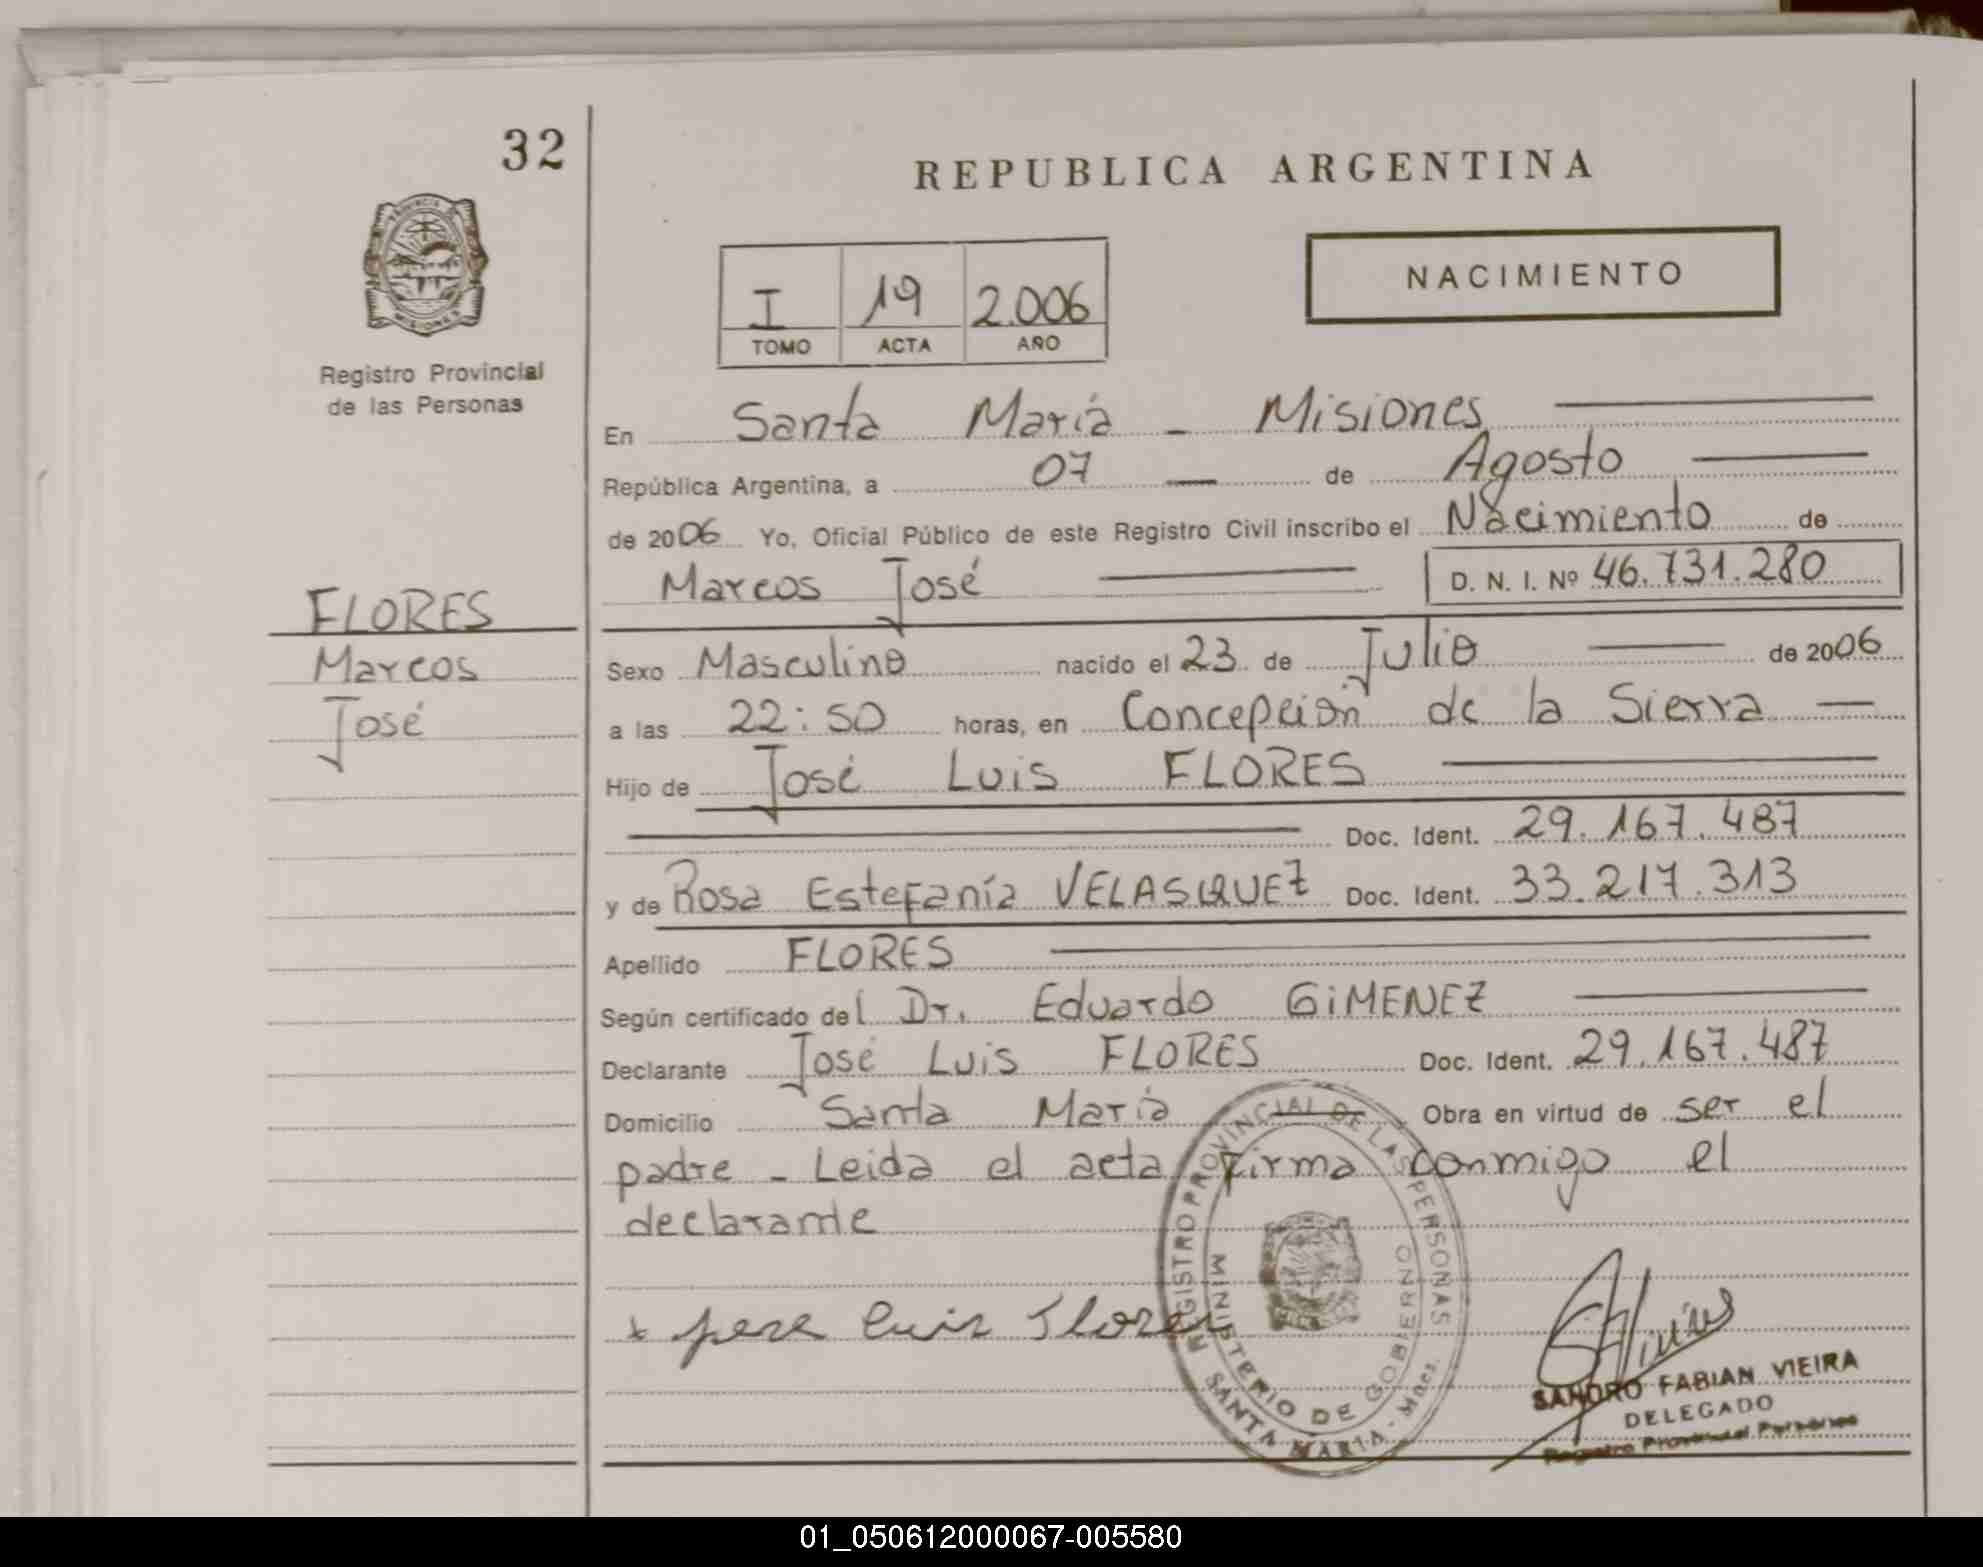 32
REPUBLICA ARGENTINA
NACIMIENTO
I 19 2.006
TOMO ACTA AÑO
PROVINCIA DE
MISIONES
Registro Provincial
de las Personas
En Santa María - Misiones
República Argentina, a 07 de Agosto
de 2006 Yo, Oficial Público de este Registro Civil inscribo el Nacimiento de
Marcos José D. N. I. Nº 46.731.280
FLORES
Marcos
José
Sexo Masculino nacido el 23 de Julio de 2006
a las 22:50 horas, en Concepción de la Sierra
Hijo de José Luis FLORES
Doc. Ident. 29.167.487
y de Rosa Estefanía VELASQUEZ Doc. Ident. 33.217.313
Apellido FLORES
Según certificado del Dr. Eduardo GiMENEZ
Declarante José Luis FLORES Doc. Ident. 29.167.487
Domicilio Santa María Obra en virtud de ser el
padre - Leida el acta firma conmigo el
declarante
REGISTRO PROVINCIAL DE LAS PERSONAS
MINISTERIO DE GOBIERNO
SANTA MARIA - Mnes.
x jose luis Flores
SANDRO FABIAN VIEIRA
DELEGADO
Registro Provincial Personas
01_050612000067-005580